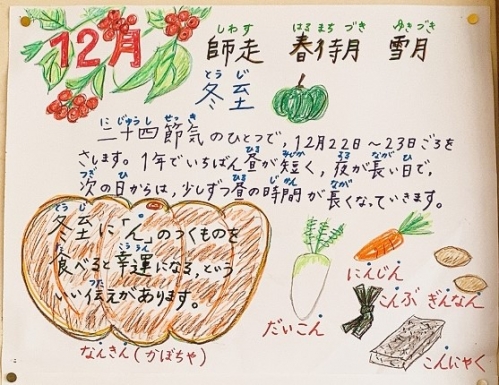 12月 師走 春待月 雪月
しわす はるまちづき ゆきづき
冬至
とうじ
二十四節気のひとつで、12月22日～23日ごろを
にじゅうしせっき
さします。1年でいちばん昼が短く、夜が長い日で、
ひる みじか よる なが ひ
次の日からは、少しずつ昼の時間が長くなっていきます。
つぎ ひ すこ ひる じかん なが
冬至に「ん」のつくものを
とうじ
食べると幸運になる、という
た こううん
いい伝えがあります。
つた
なんきん(かぼちゃ)
だいこん
にんじん
こんぶ
ぎんなん
こんにゃく